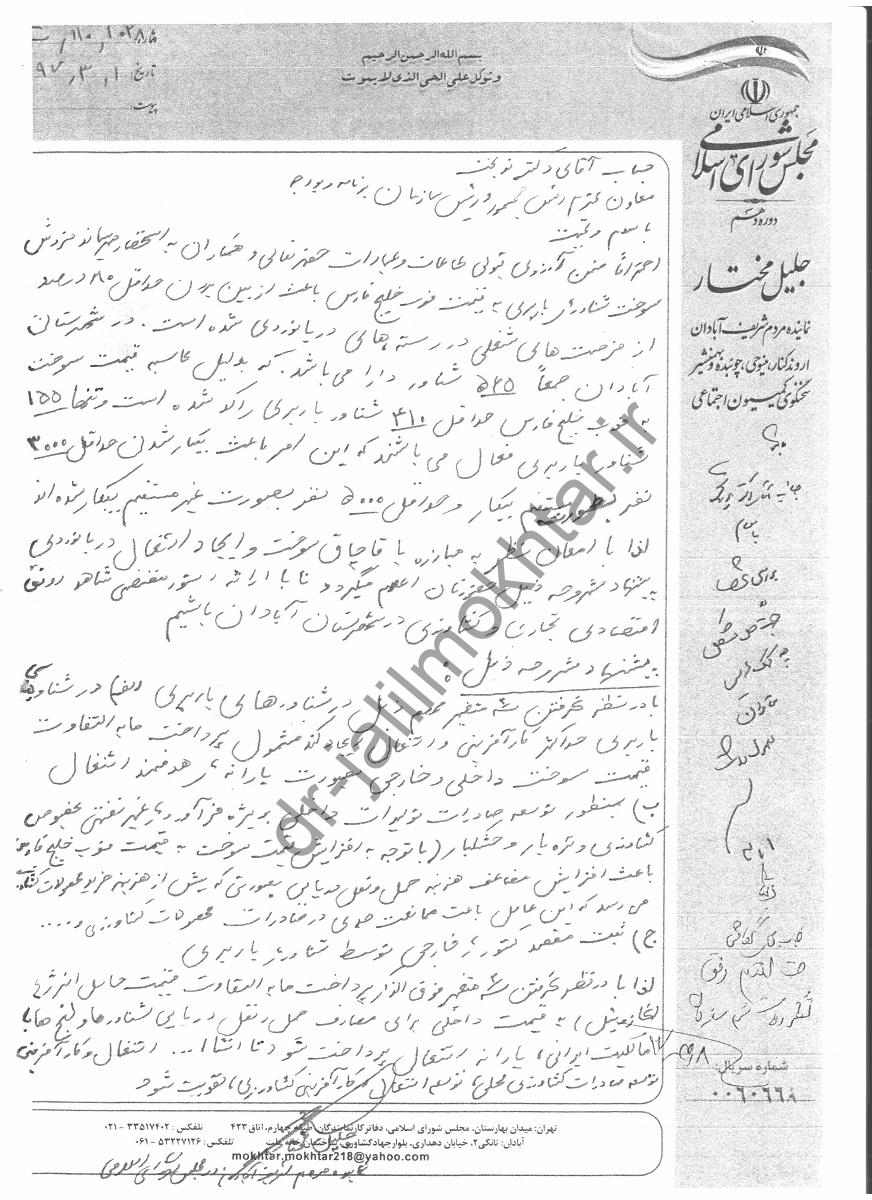 بسم الله الرحمن الرحیم
وتوکل علی الحی الذی لایموت
شماره: ۱۱۰٫۲۰۲۸
تاریخ: ۹۷٫۳٫۱
پیوست:
جمهوری اسلامی ایران
مجلس شورای اسلامی
دوره دهم
جلیل مختار
نماینده مردم شریف آبادان
اروندکنار، مینوحی، چوئبده و بهمنشیر
سخنگوی کمیسیون اجتماعی
جناب آقای دکتر نوبخت
معاون محترم رئیس جمهور و رئیس سازمان برنامه و بودجه
با سلام و تحیت
احتراماً ضمن آرزوی قبولی طاعات و عبادات حضرتعالی و همکاران به استحضار میرساند فروش
سوخت شناورهای باربری به قیمت فوب خلیج فارس باعث از بین بردن حداقل ۸۰ درصد
از فرصت هایی شغلی در رسته هایی دریانوردی شده است. در شهرستان
آبادان جمعاً ۵۶۵ شناور دارا می باشد. که بدلیل محاسبه قیمت سوخت
به فوب خلیج فارس حداقل ۴۱۰ شناور باربری راکد شده است و تنها ۱۵۵
شناور باربری فعال می باشند که این امر باعث بیکار شدن حداقل ۳۰۰۰
نفر بطور مستقیم بیکار و حداقل ۵۰۰۰ نفر بصورت غیر مستقیم بیکار شده اند
لذا با امعان نظر به مبارزه با قاچاق سوخت و ایجاد اشتغال دریانوردی
پیشنهاد مشروحه ذیل حضورتان اعلام میگردد تا با ارائه دستور مقتضی شاهد رونق
اقتصادی تجاری و کشاورزی در شهرستان آبادان باشیم
پیشنهاد مشروحه ذیل:
با در نظر گرفتن سه متغیر مهم ذیل در شناورهایی باربری الف) در شناورهایی
باربری حداکثر کارآفرینی و اشتغال ایجاد کند مشمول پرداخت مابه التفاوت
قیمت سوخت داخلی و خارجی بصورت یارانه هدفمند اشتغال
ب) بمنظور توسعه صادرات تولیدات داخلی بویژه فرآورده های غیر نفتی بخصوص
کشاورزی و تره بار و خشکبار (با توجه به افزایش قیمت سوخت به قیمت فوب خلیج فارس
باعث افزایش مضاعف هزینه حمل و نقل دریایی بصورتی که بیش از هزینه خرید محصولات کشاورزی
می رسد که این عامل باعث ممانعت جدی در صادرات محصولات کشاورزی و....
ج) ثبت مقصد کشورهای خارجی توسط شناورهای باربری
لذا با در نظر گرفتن سه متغیر فوق الذکر پرداخت مابه التفاوت قیمت حامل انرژی
(گازوئیل) به قیمت داخلی برای مصارف حمل و نقل دریایی شناورها و لنج ها با
مالکیت ایرانی، یارانه اشتغال پرداخت شود تا انشاا... اشتغال و کارآفرینی
توسعه صادرات کشاورزی محلی، توسعه اشتغال و کارآفرینی کشاورزی، تقویت شود
شماره سریال:
۰۰۶۰۶۶۸
تهران: میدان بهارستان، مجلس شورای اسلامی، دفاتر کار نمایندگان، طبقه چهارم، اتاق ۴۲۳ تلفکس: ۳۳۵۱۷۴۰۲ - ۰۲۱
آبادان: تانکی۲، خیابان دهداری، بلوار جهاد کشاورزی، ساختمان خانه ملت تلفکس: ۵۳۲۲۷۱۲۶ - ۰۶۱
mokhtar.mokhtar218@yahoo.com
جلیل مختار
نماینده مردم شریف آبادان در مجلس شورای اسلامی
dr-jalilmokhtar.ir